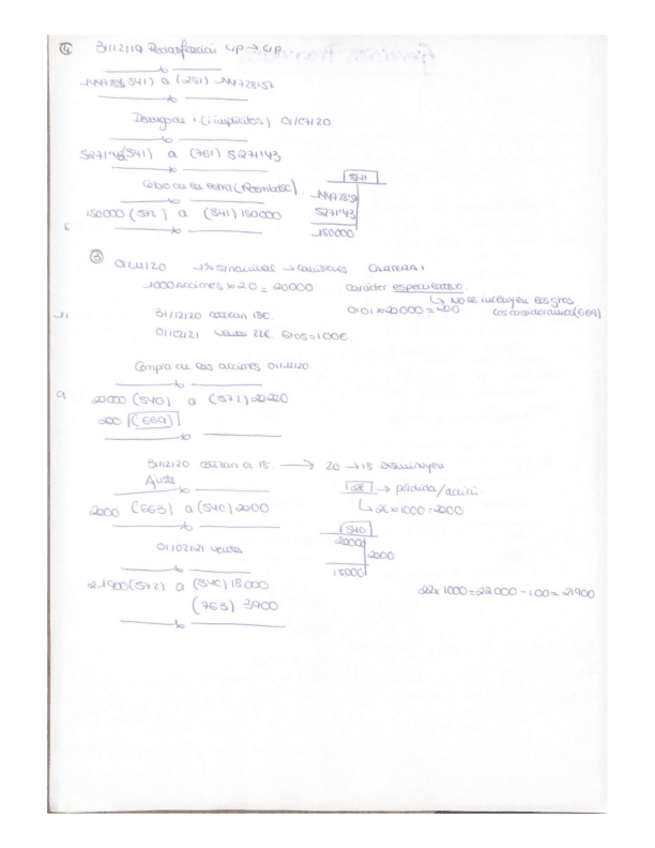 ④ 31/12/19 Reclasificación L/P → C/P
144728'57 (541) a (251) 144728'57
Devengo de i (i implícitos) 01/07/20
5271'43 (541) a (761) 5271'43
Cobro de (Reembolso)
541
144728'57
5271'43
150000
150000 (572) a (541) 150000
③ 01/11/20 → cambiarles CARTERA 1
1000 acciones x 20 = 20000 carácter especulativo
↳ NO se incluyen los gtos
31/12/20 cotizan 18€. 0'01 x 20000 = 200 los consideramos (669)
01/02/21 venta 22€. Gtos = 100€.
Compra de las acciones 01/11/20
20000 (540) a (572) 20200
200 (669)
31/12/20 cotizan a 18. → 20 → 18 Disminuyen
Ajuste
2€ → pérdida/acción
↳ 2€ x 1000 = 2000
2000 (663) a (540) 2000
540
20000
2000
18000
01/02/21 venta
21900 (572) a (540) 18000
(763) 3900
22 x 1000 = 22000 - 100 = 21900